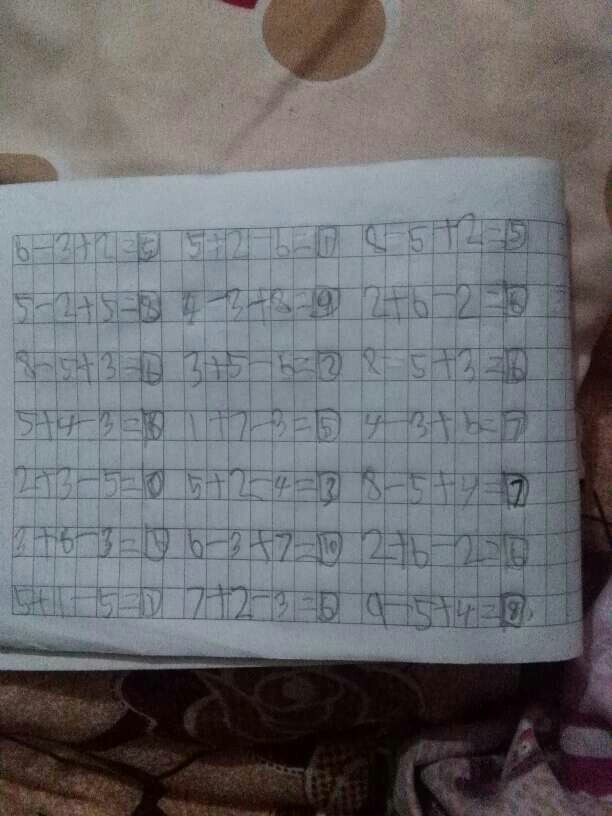 6-3+2=5 5+2-6=1 8-5+2=5
5-2+5=8 4-3+8=9 2+6-2=6
8-5+3=6 3+5-6=2 8-5+3=6
5+4-3=6 1+7-3=5 4-3+6=7
2+3-5=0 5+2-4=3 8-5+4=7
3+6-3= 6-3+7=10 2+6-2=6
5+1-5=1 7+2-3=6 9-5+4=8